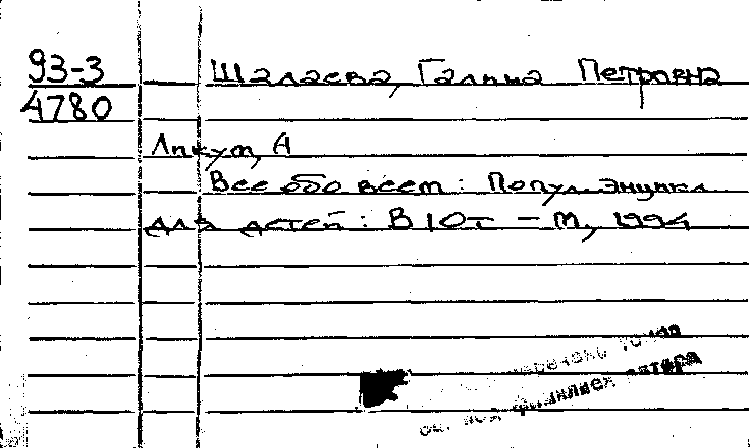 93-3 Шалаева, Галина Петровна
4780
Ликум, А
Все обо всем: Попул. энцикл.
для детей: В 10т - М, 1994
см. под фамилией автора